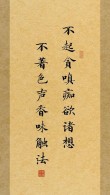 不起貪嗔痴欲诸想
不著色声香味触法